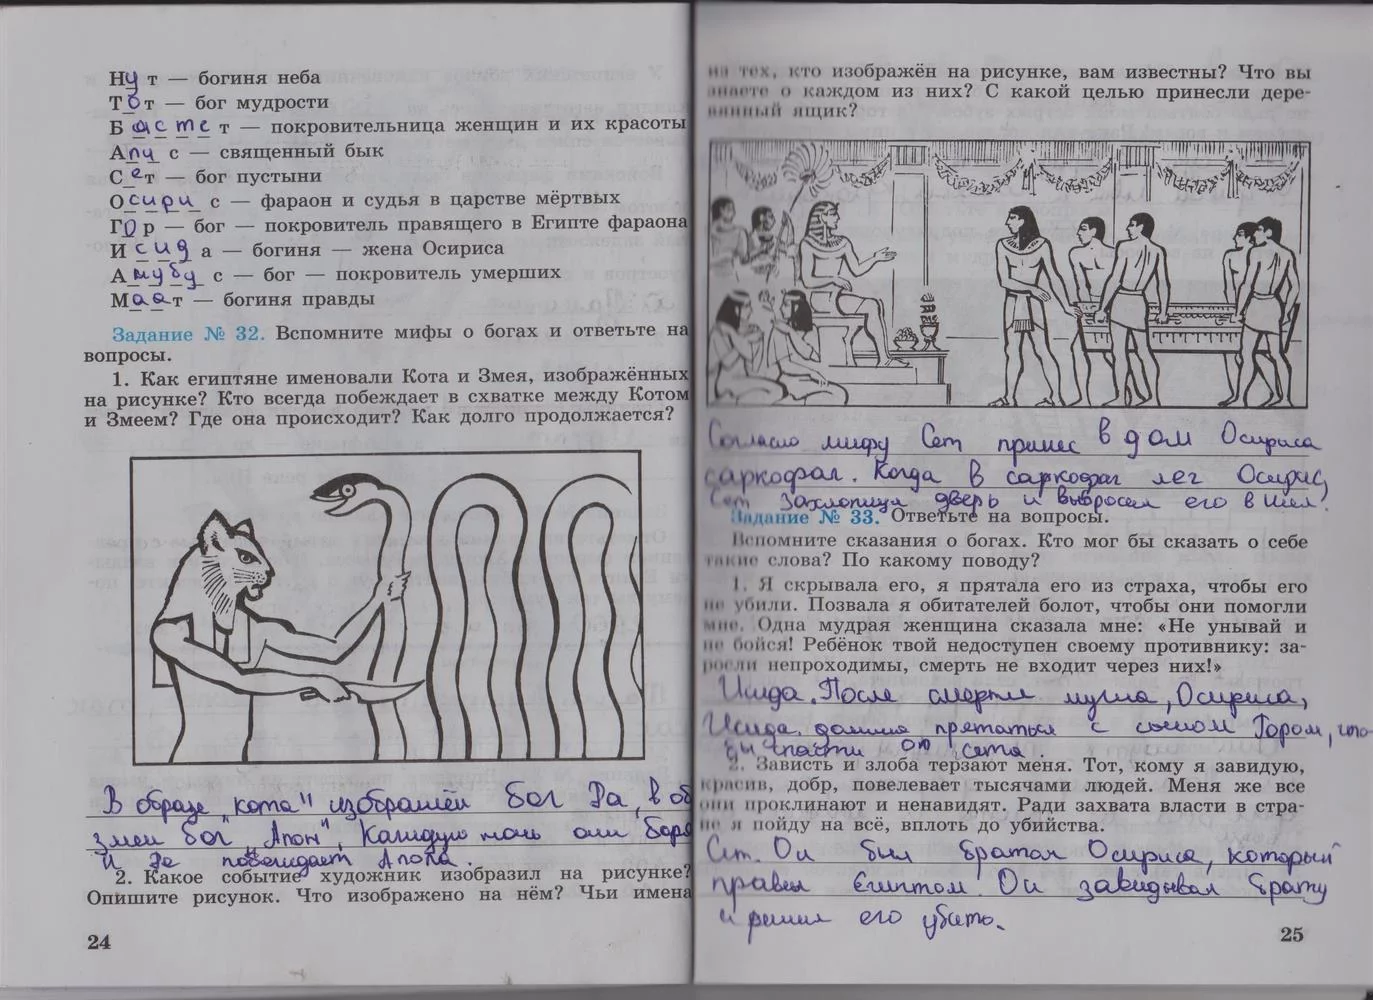 Нут — богиня неба
Тот — бог мудрости
Бастет — покровительница женщин и их красоты
Апис — священный бык
Сет — бог пустыни
Осирис — фараон и судья в царстве мёртвых
Гор — бог — покровитель правящего в Египте фараона
Исида — богиня — жена Осириса
Анубус — бог — покровитель умерших
Маат — богиня правды
Задание № 32. Вспомните мифы о богах и ответьте на
вопросы.
1. Как египтяне именовали Кота и Змея, изображённых
на рисунке? Кто всегда побеждает в схватке между Котом
и Змеем? Где она происходит? Как долго продолжается?
В образе "кота" изображён бог Ра, в об
змеи бог "Апоп", Каждую ночь они боря
и Ра побеждает Апопа.
2. Какое событие художник изобразил на рисунке?
Опишите рисунок. Что изображено на нём? Чьи имена
24
из тех, кто изображён на рисунке, вам известны? Что вы
знаете о каждом из них? С какой целью принесли дере-
вянный ящик?
Согласно мифу Сет принес в дом Осириса
саркофаг. Когда в саркофаг лег Осирис,
Сет захлопнул дверь и выбросил его в Нил!
Задание № 33. Ответьте на вопросы.
Вспомните сказания о богах. Кто мог бы сказать о себе
такие слова? По какому поводу?
1. Я скрывала его, я прятала его из страха, чтобы его
не убили. Позвала я обитателей болот, чтобы они помогли
мне. Одна мудрая женщина сказала мне: «Не унывай и
не бойся! Ребёнок твой недоступен своему противнику: за-
росли непроходимы, смерть не входит через них!»
Исида. После смерти мужа, Осириса,
Исида должна прятаться с сыном Гором, что
бы спасти от Сета.
2. Зависть и злоба терзают меня. Тот, кому я завидую,
красив, добр, повелевает тысячами людей. Меня же все
они проклинают и ненавидят. Ради захвата власти в стра-
не я пойду на всё, вплоть до убийства.
Сет. Он был братом Осириса, который
правил Египтом. Он завидывал брату
и решил его убить.
25